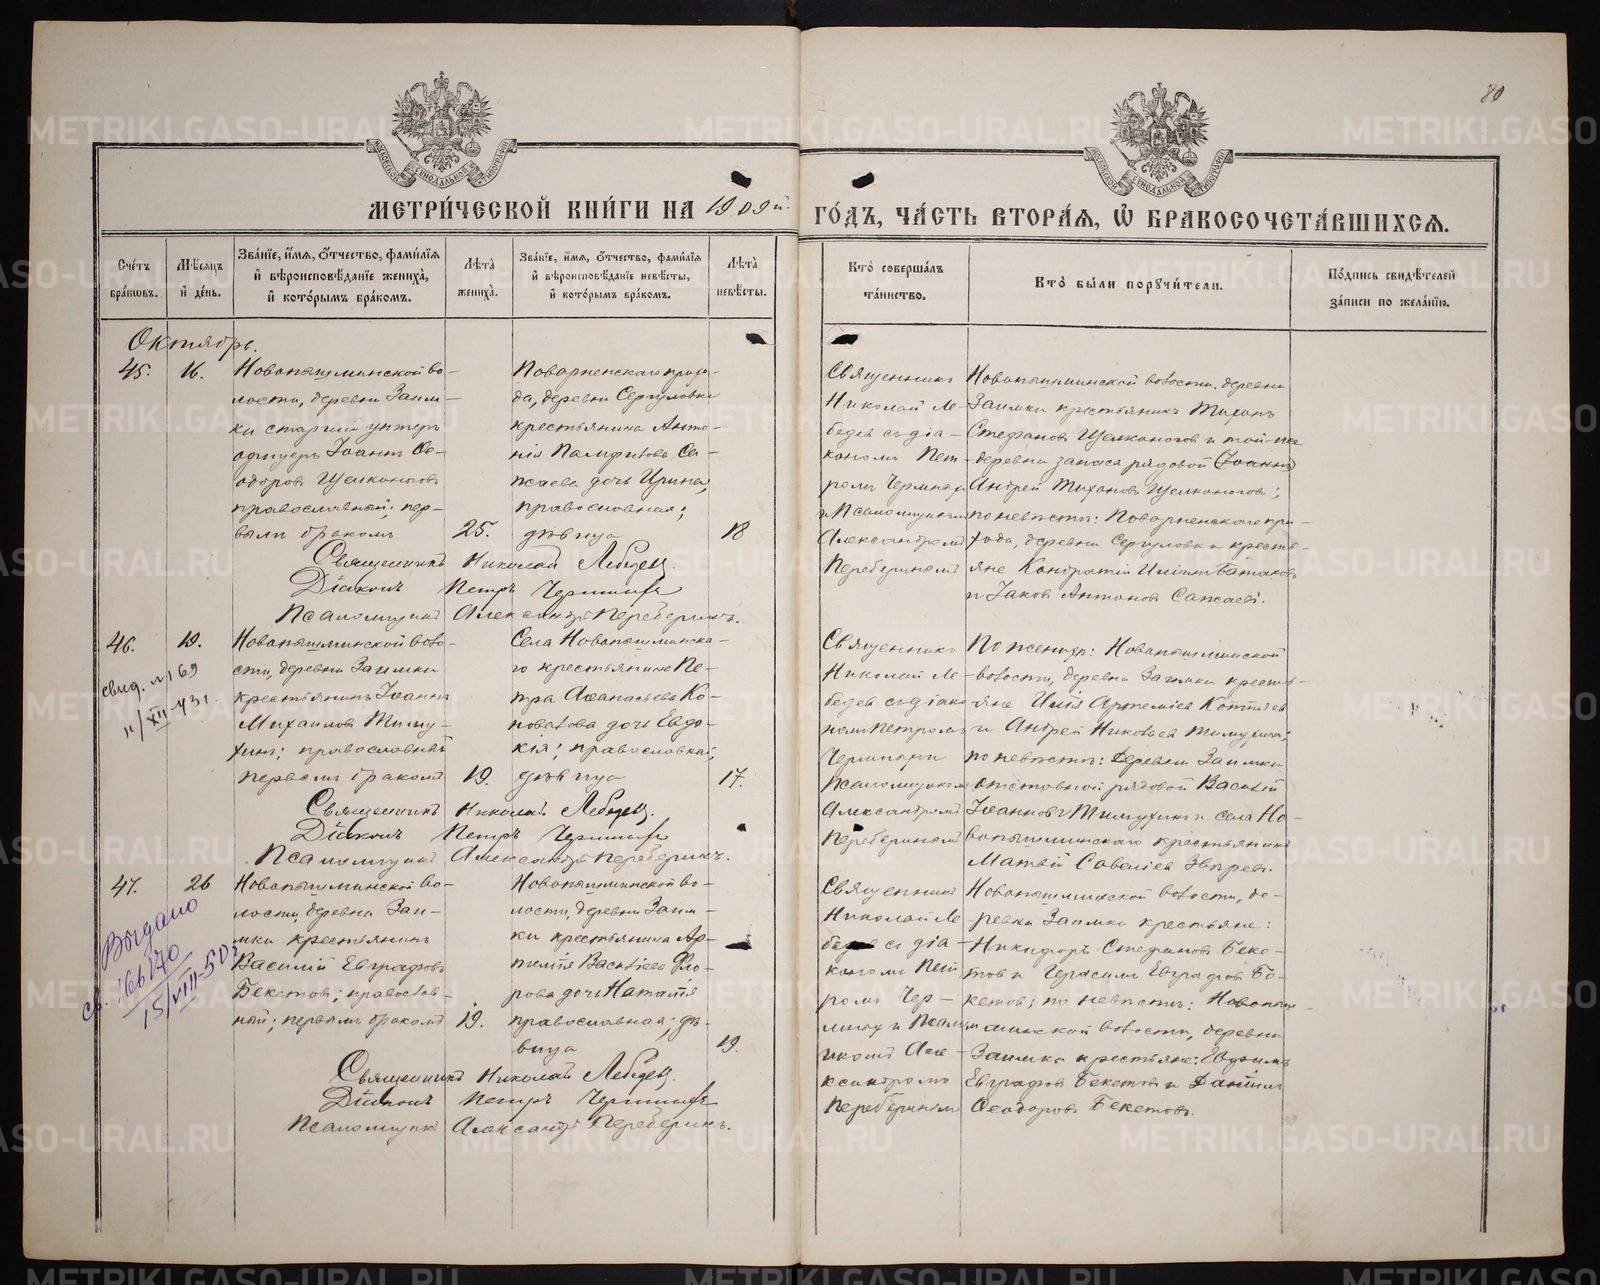 80
МЕТРИ́ЧЕСКОЙ КНИ́ГИ НА 1909й.
ГО́ДЪ, ЧА́СТЬ ВТОРА́Я, Ѡ҆ БРАКОСОЧЕТА́ВШИХСЯ.
Сче́тъ бра́кѡвъ.
Мѣ́сяцъ и҆ де́нь.
Зва́нїе, и҆́мя, ѻ҆́тчество, фами́лїя и҆ вѣроисповѣ́данїе жениха̀, и҆ кото́рымъ бра́комъ.
Лѣ́та жениха̀.
Зва́нїе, и҆́мя, ѻ҆́тчество, фами́лїя и҆ вѣроисповѣ́данїе невѣ́сты, и҆ кото́рымъ бра́комъ.
Лѣ́та невѣ́сты.
Кто̀ соверша́лъ та́инство.
Кто̀ бы́ли порꙋчи́тели.
По́дпись свидѣ́телей за́писи по жела́нїю.
Октябрь.
45.
16.
Новопышминской во-
лости, деревни Заим-
ки старшій унтеръ
офицеръ Іоаннъ Ѳе-
одоровъ Щелконоговъ
православный; пер-
вымъ бракомъ
25.
Поварненскаго прихо-
да, деревни Сергуловки
крестьянина Анто-
нія Памфилова Са-
жаева дочь Ирина,
православная;
дѣвица
18
Священникъ
Николай Ле-
бедевъ съ діа-
кономъ Пет-
ромъ
и Псаломщикомъ
Александромъ
Переберинымъ
Новопышминской волости, деревни
Заимки крестьянинъ Тихонъ
Стефановъ Щелконоговъ и той-же
деревни запаса рядовой Іоаннъ
Андрей Тихоновъ Щелконоговъ;
по невѣстѣ: Поварненскаго при-
хода, деревни Сергуловки кресть-
яне Кондратій Иліинъ
и Іаковъ Антоновъ Сажаевъ.
Священникъ Николай Лебедевъ.
Діаконъ Петръ
Псаломщикъ Александръ Переберинъ.
46.
19.
свид. № 169
11/XII-43г.
Новопышминской воло-
сти, деревни Заимки
крестьянинъ Іоаннъ
Михаиловъ Тиму-
хинъ; православный
первымъ бракомъ
19.
Села Новопышминска-
го крестьянина Пе-
тра Аѳанасьева Ко-
новалова дочь Евдо-
кія; православная;
дѣвица
17.
Священникъ
Николай Ле-
бедевъ съ діако-
номъ Петромъ
Псаломщикомъ
Александромъ
Переберинымъ
По женихѣ: Новопышминской
волости, деревни Заимки кресть-
яне Илія Артеміевъ
и Андрей Николаевъ Тимухинъ;
по невѣстѣ: Деревни Заимки
отставной рядовой Василій
Іоанновъ Тимухинъ и села Но-
вопышминскаго крестьянинъ
Матѳій Савеліевъ Звѣревъ.
Священникъ Николай Лебедевъ.
Діаконъ Петръ
Псаломщикъ Александръ Переберинъ.
47.
26
Выдано
св.
15/VIII-50г.
Новопышминской во-
лости, деревни Заи-
мки крестьянинъ
Василій Евграфовъ
Бекетовъ; православ-
ный; первымъ бракомъ
19.
Новопышминской во-
лости, деревни Заим-
ки крестьянина
Васильева Фло-
рова дочь Наталія
православная; дѣ-
вица
19.
Священникъ
Николай Ле-
бедевъ съ діа-
кономъ Пет
ромъ Чер-
и Псалом
щикомъ Але-
ксандромъ
Переберинымъ
Новопышминской волости, де-
ревни Заимки крестьяне:
Никифоръ Стефановъ Беке-
товъ и Герасимъ Евграфовъ Бе-
кетовъ; по невѣстѣ: Новопыш-
минской волости, деревни
Заимки крестьяне: Евфимъ
Евграфовъ Бекетовъ и Даніилъ
Ѳеодоровъ Бекетовъ.
Священникъ Николай Лебедевъ.
Діаконъ Петръ
Псаломщикъ Александръ Переберинъ.
METRIKI.GASO-URAL.RU